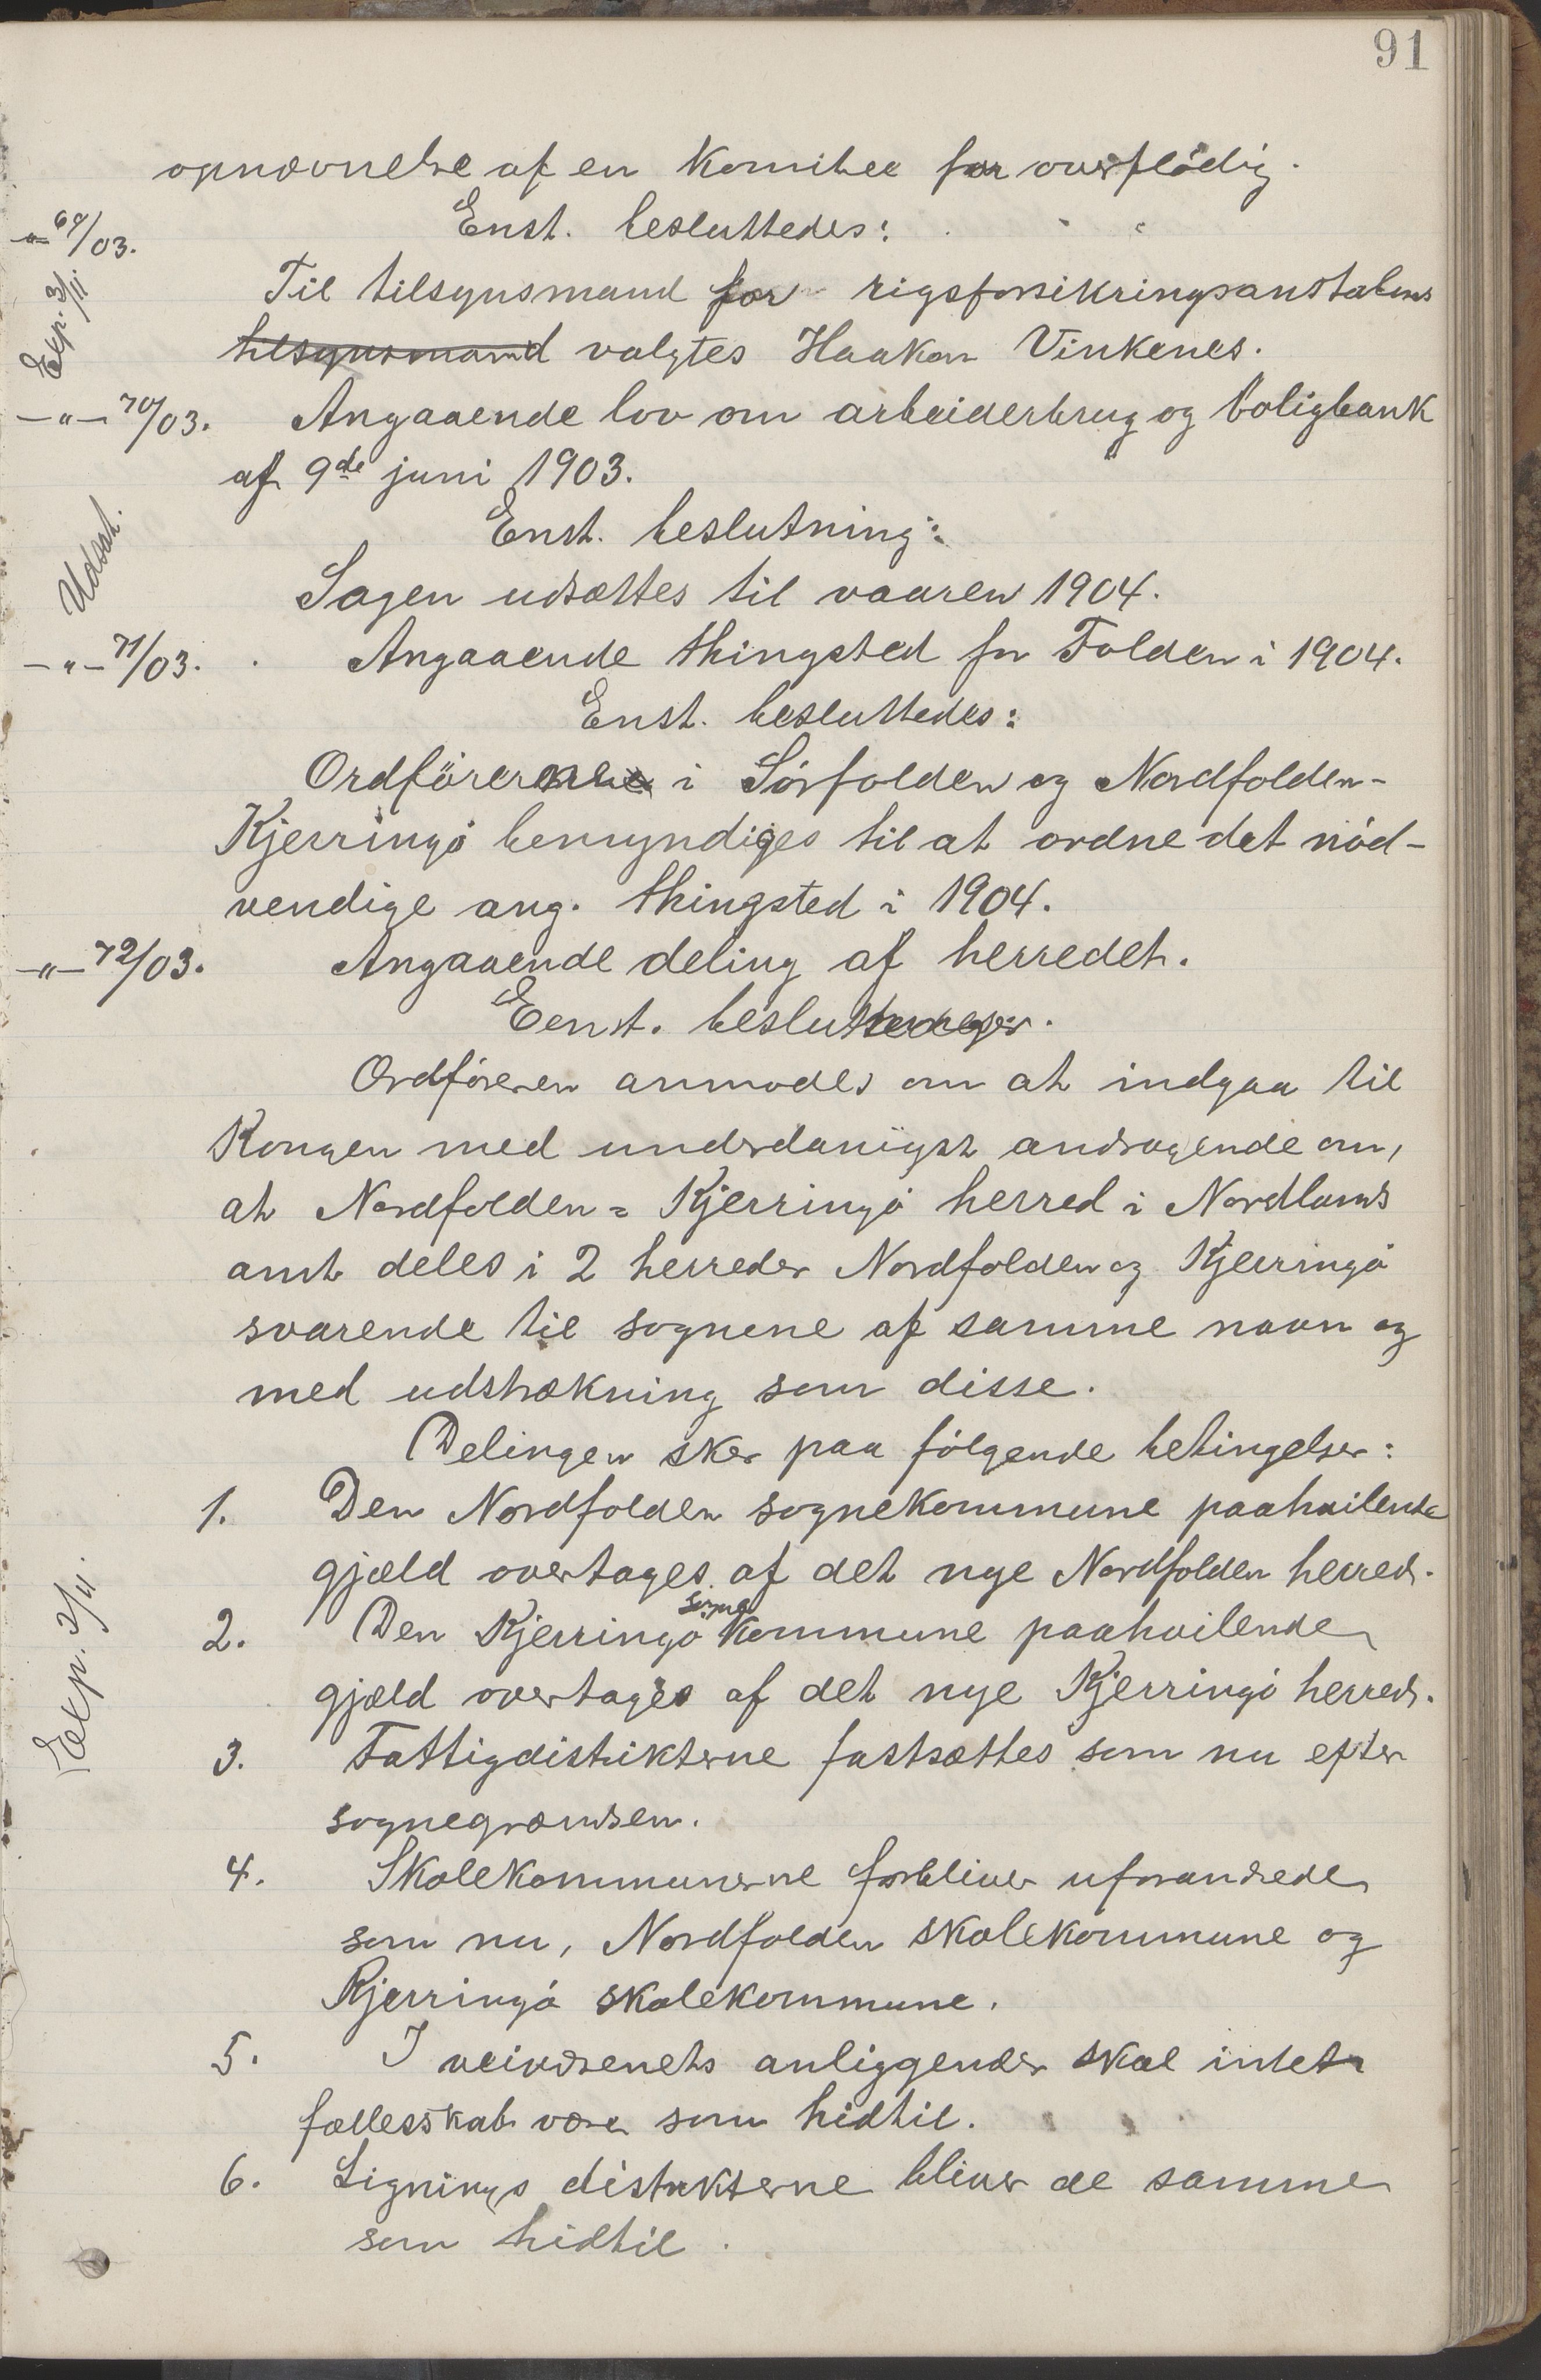 91
opnævnelse af en komitee for overflødig.
-"- 69/03.
Enst. besluttedes:
Exp. 3/11
Til tilsynsmand for rigsforsikringsanstalens
tilsynsmand valgtes Haakon Vinkenes.
-"- 70/03.
Angaaende lov om arbeiderbrug og boligbank
af 9de juni 1903.
Enst. beslutning:
Udsat.
Sagen udsættes til vaaren 1904.
-"- 71/03.
Angaaende thingsted for Folden i 1904.
Enst. besluttedes:
Ordförerne i Sörfolden og Nordfolden-
Kjerringö bemyndiges til at ordne det nöd-
vendige ang. thingsted i 1904.
-"- 72/03.
Angaaende deling af herredet.
Eenst.
Ordföreren anmodes om at indgaa til
Kongen med underdanigst andragende om,
at Nordfolden = Kjerringö herred i Nordlands
amt deles i 2 herreder Nordfolden og Kjerringö
svarende til sognene af samme navn og
med udstrækning som disse.
Delingen sker paa fölgende betingelser:
1. Den Nordfolden sognekommune paahvilende
gjæld overtages af det nye Nordfolden herred.
2. Den Kjerringö sogne kommune paahvilende
gjæld overtages af det nye Kjerringö herred.
Exp. 3/11.
3. Fattigdistrikterne fastsættes som nu efter
sognegrændsen.
4. Skolekommunerne forbliver uforandrede
som nu, Nordfolden skolekommune og
Kjerringö skolekommune.
5. I veivæsenets anliggender skal intet
fællesskab være som hidtil.
6. Lignings distrikterne bliver de samme
som hidtil.